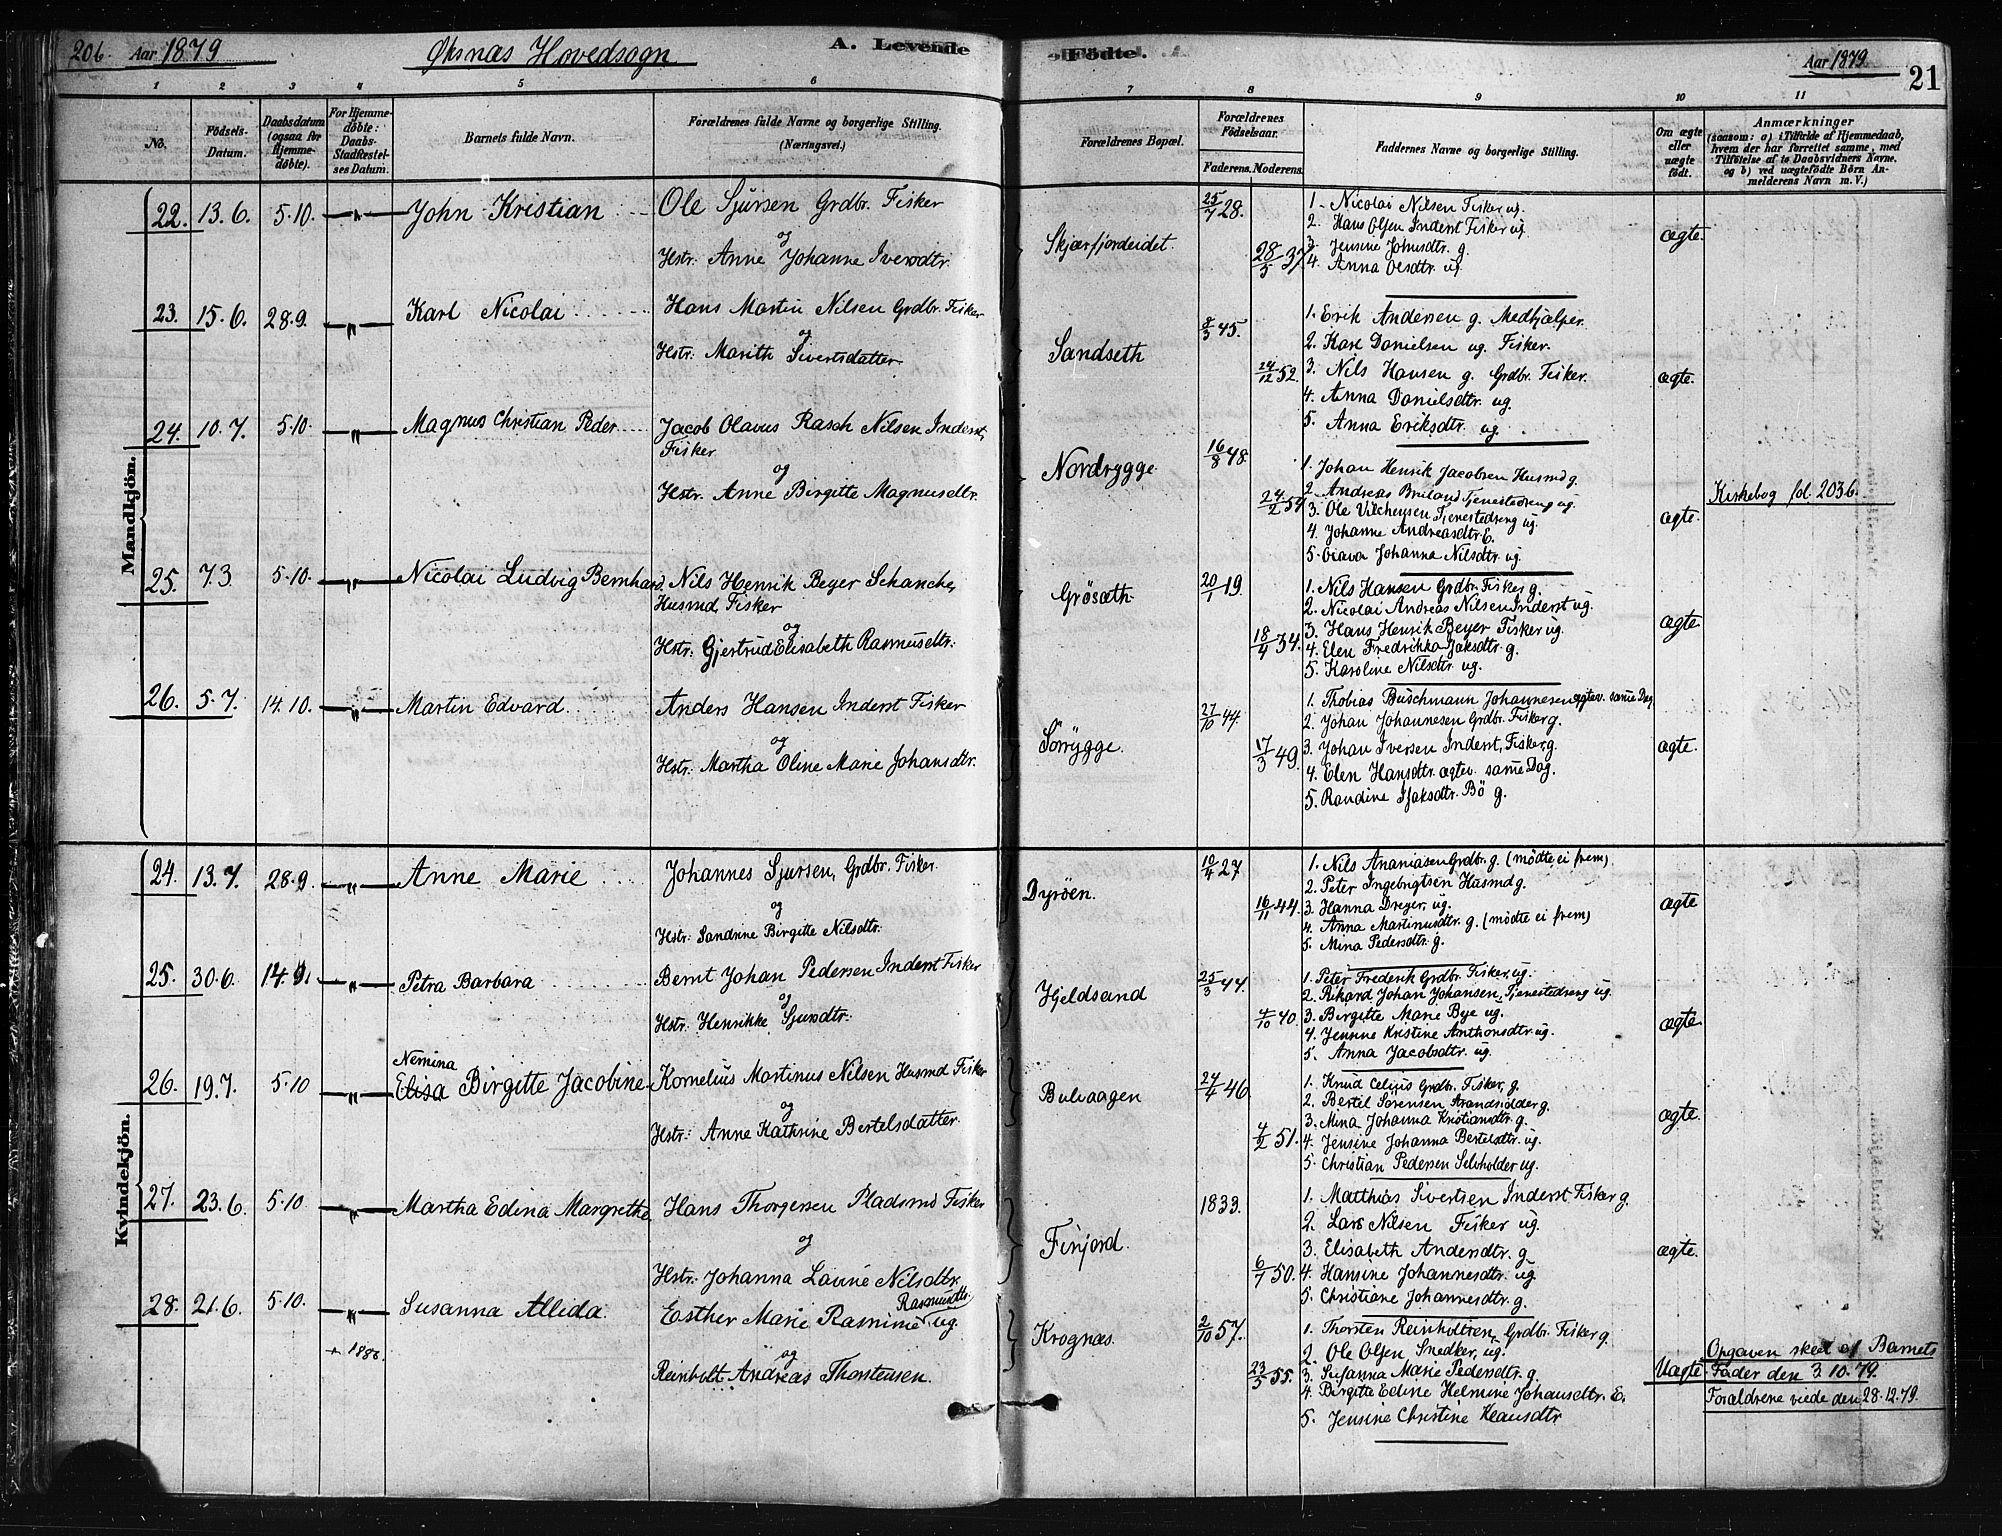 206 Aar 1879 Øksnæs Hovedsogn A. Levende Födte. Aar 1879 21
1 2 3 4 5 6 7 8 9 10 11
No.
Födsels-Datum.
Daabsdatum (ogsaa for Hjemme-döbte).
For Hjemme-döbte: Daabs-Stadfæstel-ses Datum.
Barnets fulde Navn.
Forældrenes fulde Navne og borgerlige Stilling.
(Næringsvei.)
Forældrenes Bopæl.
Forældrenes Födselsaar.
Faderens. Moderens.
Faddernes Navne og borgerlige Stilling.
Om ægte eller uægte födt.
Anmærkninger
(saasom: a) i Tilfælde af Hjemmedaab, hvem der har forrettet samme, med Tilföielse af to Daabsvidners Navne, og b) ved uægtefödte Börn Anmelderens Navn m. V.)
Mandkjön.
22. 13.6. 5.10. —„— John Kristian
Ole Sjursen Grdbr. Fisker
og
Hstr: Anne Johanne Iversdtr.
Skjærfjordeidet.
25/7 28.
28/5 37
1. Nicolai Nilsen Fisker ug.
2. Hans Olsen Inderst Fisker ug.
3. Jensine Johnsdtr. g.
4. Anna Olsdtr. ug.
ægte.
23. 15.6. 28.9. —„— Karl Nicolai
Hans Martin Nilsen Grdbr. Fisker
og
Hstr: Marith Sivertsdatter
Sandseth
8/3 45.
24/12 52.
1. Erik Andersen g. Medhjælper.
2. Karl Danielsen ug. Fisker.
3. Nils Hansen g. Grdbr. Fisker.
4. Anna Danielsdtr. ug.
5. Anna Eriksdtr. ug.
ægte.
24. 10.7. 5.10. —„— Magnus Christian Peder
Jacob Olavus Rasch Nilsen Inderst,
Fisker
og
Hstr. Anne Birgitte Magnusdtr.
Nordrygge.
16/8 48.
24/2 54
1. Johan Henrik Jacobsen Husmd g.
2. Andreas Bruland Tjenestedreng ug.
3. Ole Vilchensen Tjenestedreng ug.
4. Johanne Andreasdtr E.
5. Oiava Johanna Nilsdtr. ug.
ægte.
Kirkebog fol. 2036.
25. 7.3. 5.10. —„— Nicolai Ludvig Bernhard
Nils Henrik Beyer Schanche,
Husmd. Fisker
og
Hstr: Gjertrud Elisabeth Rasmusdtr.
Grösæth.
20/1 19.
18/4 34.
1. Nils Hansen Grdbr. Fisker g.
2. Nicolai Andreas Nilsen Inderst ug.
3. Hans Henrik Beyer Fisker ug.
4. Elen Fredrikka Jaksdtr. g.
5. Karoline Nilsdtr. ug.
ægte.
26. 5.7. 14.10. —„— Martin Edvard.
Anders Hansen Inderst Fisker
og
Hstr: Martha Oline Marie Johansdtr.
Sörrygge.
27/10 44.
17/3 49.
1. Thobias Buschmann Johannesen ægtev. samme Dag
2. Johan Johannesen Grdbr. Fisker g.
3. Johan Iversen Inderst, Fisker, g.
4. Elen Hansdtr. ægtev. samme Dag.
5. Randine Isaksdtr. Bö g.
ægte.
Kvindekjön.
24. 13.7. 28.9. —„— Anne Marie
Johannes Sjursen, Grdbr. Fisker.
og
Hstr: Sandrine Birgitte Nilsdtr.
Dyröen.
19/4 27
16/11 44.
1. Nils Ananiasen Grdbr. g. (mödte ei frem).
2. Peter Ingebrigtsen Husmd g.
3. Hanna Dreyer, ug.
4. Anna Martinusdtr. g. (mödte ei frem)
5. Mina Pedersdtr. g.
ægte
25. 30.6. 14.9. —„— Petra Barbara
Bernt Johan Pedersen Inderst Fisker
og
Hstr: Henrikke Sjursdtr:
Hjeldsand
25/3 44.
4/10 40.
1. Peter Frederik Grdbr. Fisker, ug.
2. Rikard Johan Johansen, Tjenestedreng ug.
3. Birgitte Marie Bye ug.
4. Jennne Kristine Anthonsdtr. ug.
5. Anna Jacobsdtr. ug.
ægte.
26. 19.7. 5.10 —„— Nemina
Elisa Birgitte Jacobine
Kornelius Martinus Nilsen Husmd Fisker
og
Hstr: Anne Kathrine Bertelsdatter.
Bulvaagen
27/4 46.
4/2 51.
1. Knud Celius Grdbr. Fisker, g.
2. Bertel Sörensen Strandsidder g.
3. Mina Johanna Kristiansdtr. g.
4. Jensine Johanna Bertelsdtr. ug.
5. Christian Pedersen Selvholder ug.
ægte.
27. 23.6. 5.10 —„— Martha Edina Margrethe
Hans Thorgersen Pladsmd Fisker
og
Hstr: Johanna Lovine Nilsdtr.
Finjord.
1833.
6/7 50.
1. Matthias Sivertsen Inderst Fisker g.
2. Lars Nilsen Fisker ug.
3. Elisabeth Andersdtr. g
4. Hansine Johannesdtr. ug.
5. Christiane Johannesdtr. g.
ægte.
28. 21.6. 5.10. —„— Susanna Allida.
+ 1886.
Esther Marie Rasmine Rasmusdtr. ug.
og
Reinholt Andreas Thorstensen.
Krognæs.
2/10 57.
23/5 55.
1. Thorsten Reinholtsen, Grdbr. Fisker g.
2. Ole Olsen Snedker, ug.
3. Susanna Marie Pedersdtr. g.
4. Birgitte Edine Helmine Johansdtr. E.
5. Jensine Christine Klausdtr
Uægte
Opgaven skeet af Barnets
Fader den 3.10.79.
Forældrene viede den 28.12.79.